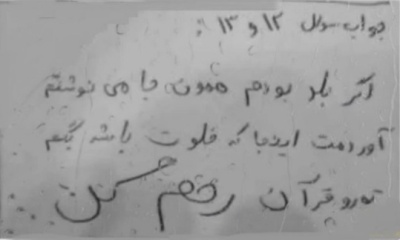 جواب سوال ۱۲ و ۱۳ :
اگر بلد بودم همون جا می نوشتم
آوردمت اینجا که خلوت باشه بگم
تورو قرآن رحم کن ...